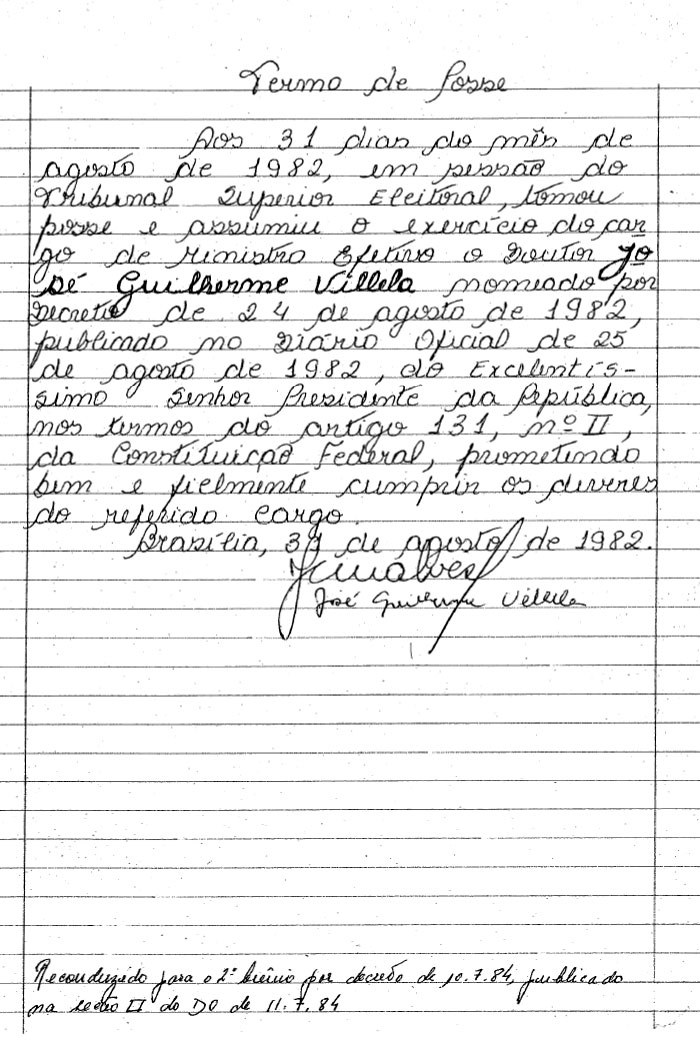 Termo de Posse
Aos 31 dias do mês de
agosto de 1982, em sessão do
Tribunal Superior Eleitoral, tomou
posse e assumiu o exercício do car
go de Ministro Efetivo o Doutor Jo
sé Guilherme Villela nomeado por
Decreto de 24 de agosto de 1982,
publicado no Diário Oficial de 25
de agosto de 1982, do Excelentís-
simo Senhor Presidente da República,
nos termos do artigo 131, nº II,
da Constituição Federal, prometendo
bem e fielmente cumprir os deveres
do referido cargo.
Brasília, 31 de agosto de 1982.
José Guilherme Villela
Reconduzido para o 2º biênio por decreto de 10.7.84, publicado
na seção II do DO de 11.7.84